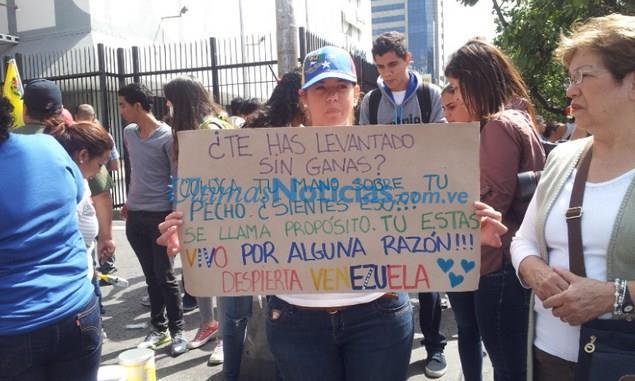 ¿TE HAS LEVANTADO
SIN GANAS?
COLOCA TU MANO SOBRE TU
PECHO ¿SIENTES ESO?...
SE LLAMA PROPÓSITO. TÚ ESTAS
VIVO POR ALGUNA RAZÓN!!!
DESPIERTA VENEZUELA
ÚltimasNoticias.com.ve